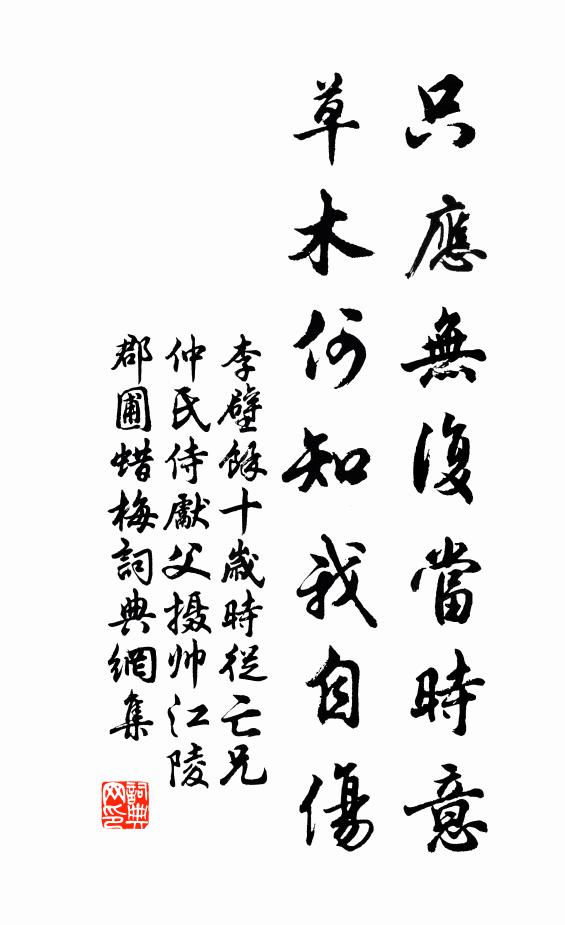 只應無復當時意
草木何知我自傷
李壁餘十歲時從亡兄
仲氏侍獻父摄帅江陵
郡圃蜡梅詞典網集
詞典
网印